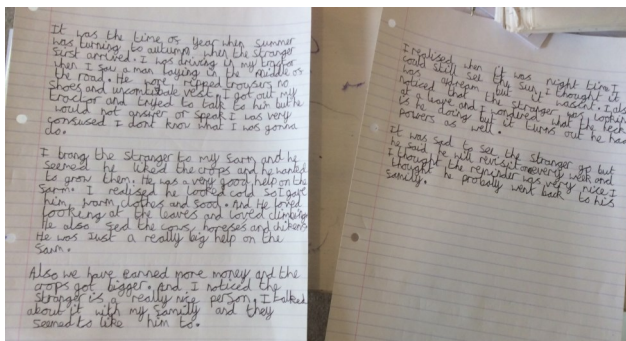 It was the time of year when summer
was turning to autumn when the stranger
first arrived. I was driving in my tractor
when I saw a man laying in the middle of
the road. He wore ripped trousers no
shoes and uncomftable vest. I got out my
tractor and tryed to talk to him but he
would not answer or speak I was very
consused I dont know what I was gonna
do.
I brang the stranger to my farm and he
seemed he liked the crops and he wanted
to grow them. He was a very good help on the
farm. I realised he looked cold so I gave
him, warm clothes and food. And He loved
looking at the leaves and loved climbing
He also fed the cows, horeses and chikens
He was just a really big help on the
farm.
Also we have earned more money and the
crops got bigger. And I noticed the
stranger is a really nice person. I talked
about it with my familly and they
seemed to like him to.
I realised when it was night time I
could still see the sun, I thought it
was a dream but it wassent. I also
noticed that the stranger was looking
at a leave and I wondered what the heck
is he doing but it turns out he had
powers as well.
It was sad to see the stranger go but
he said he will revisit every week and
I thought the reminder was very nice I
thought he probally went back to his
familly.